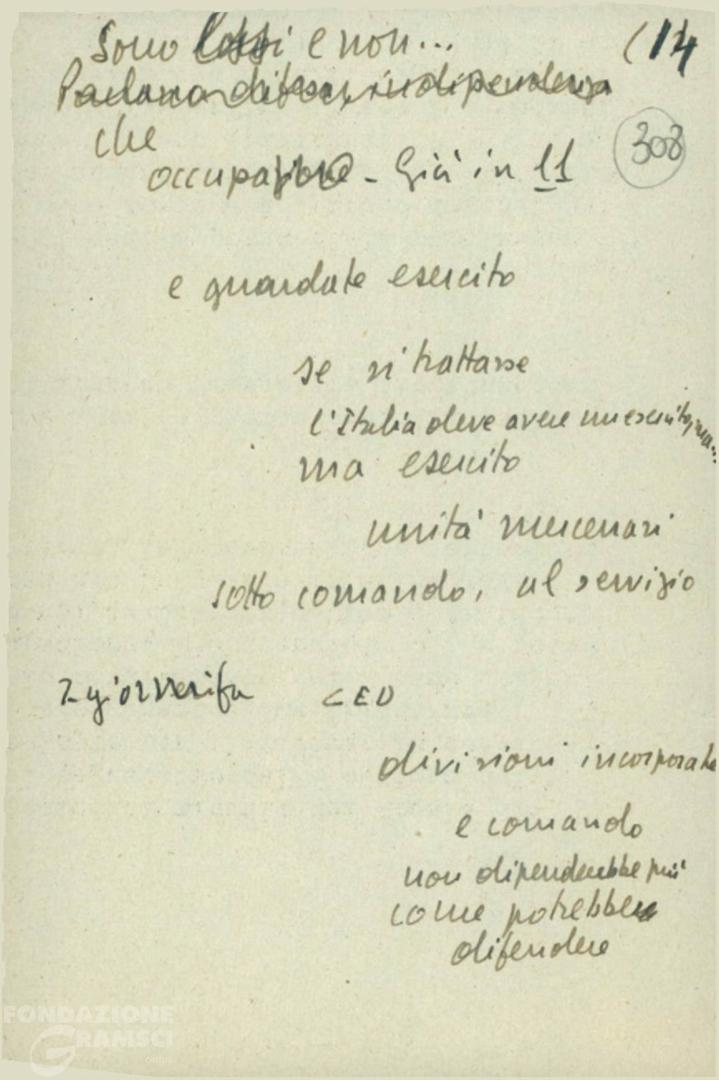 Sono e non... (14
Parlano difesa, indipendenza
che
308
occupazione - Già in 11
e guardate esercito
se si trattasse
l'Italia deve avere un esercito, ma...
ma esercito
unità mercenari
sotto comando, al servizio
CED
divisioni incorporate
e comando
non dipenderebbe più
come potrebbe
difendere
FONDAZIONE
GRAMSCI